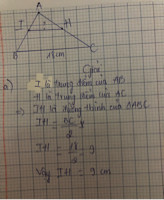 A
I
H
B
18cm
C
Giải
a) I là trung điểm của AB
H là trung điểm của AC
=> IH là đường trung bình của ΔABC
IH = BC / 2
IH = 18 / 2 = 9
Vậy IH = 9 cm